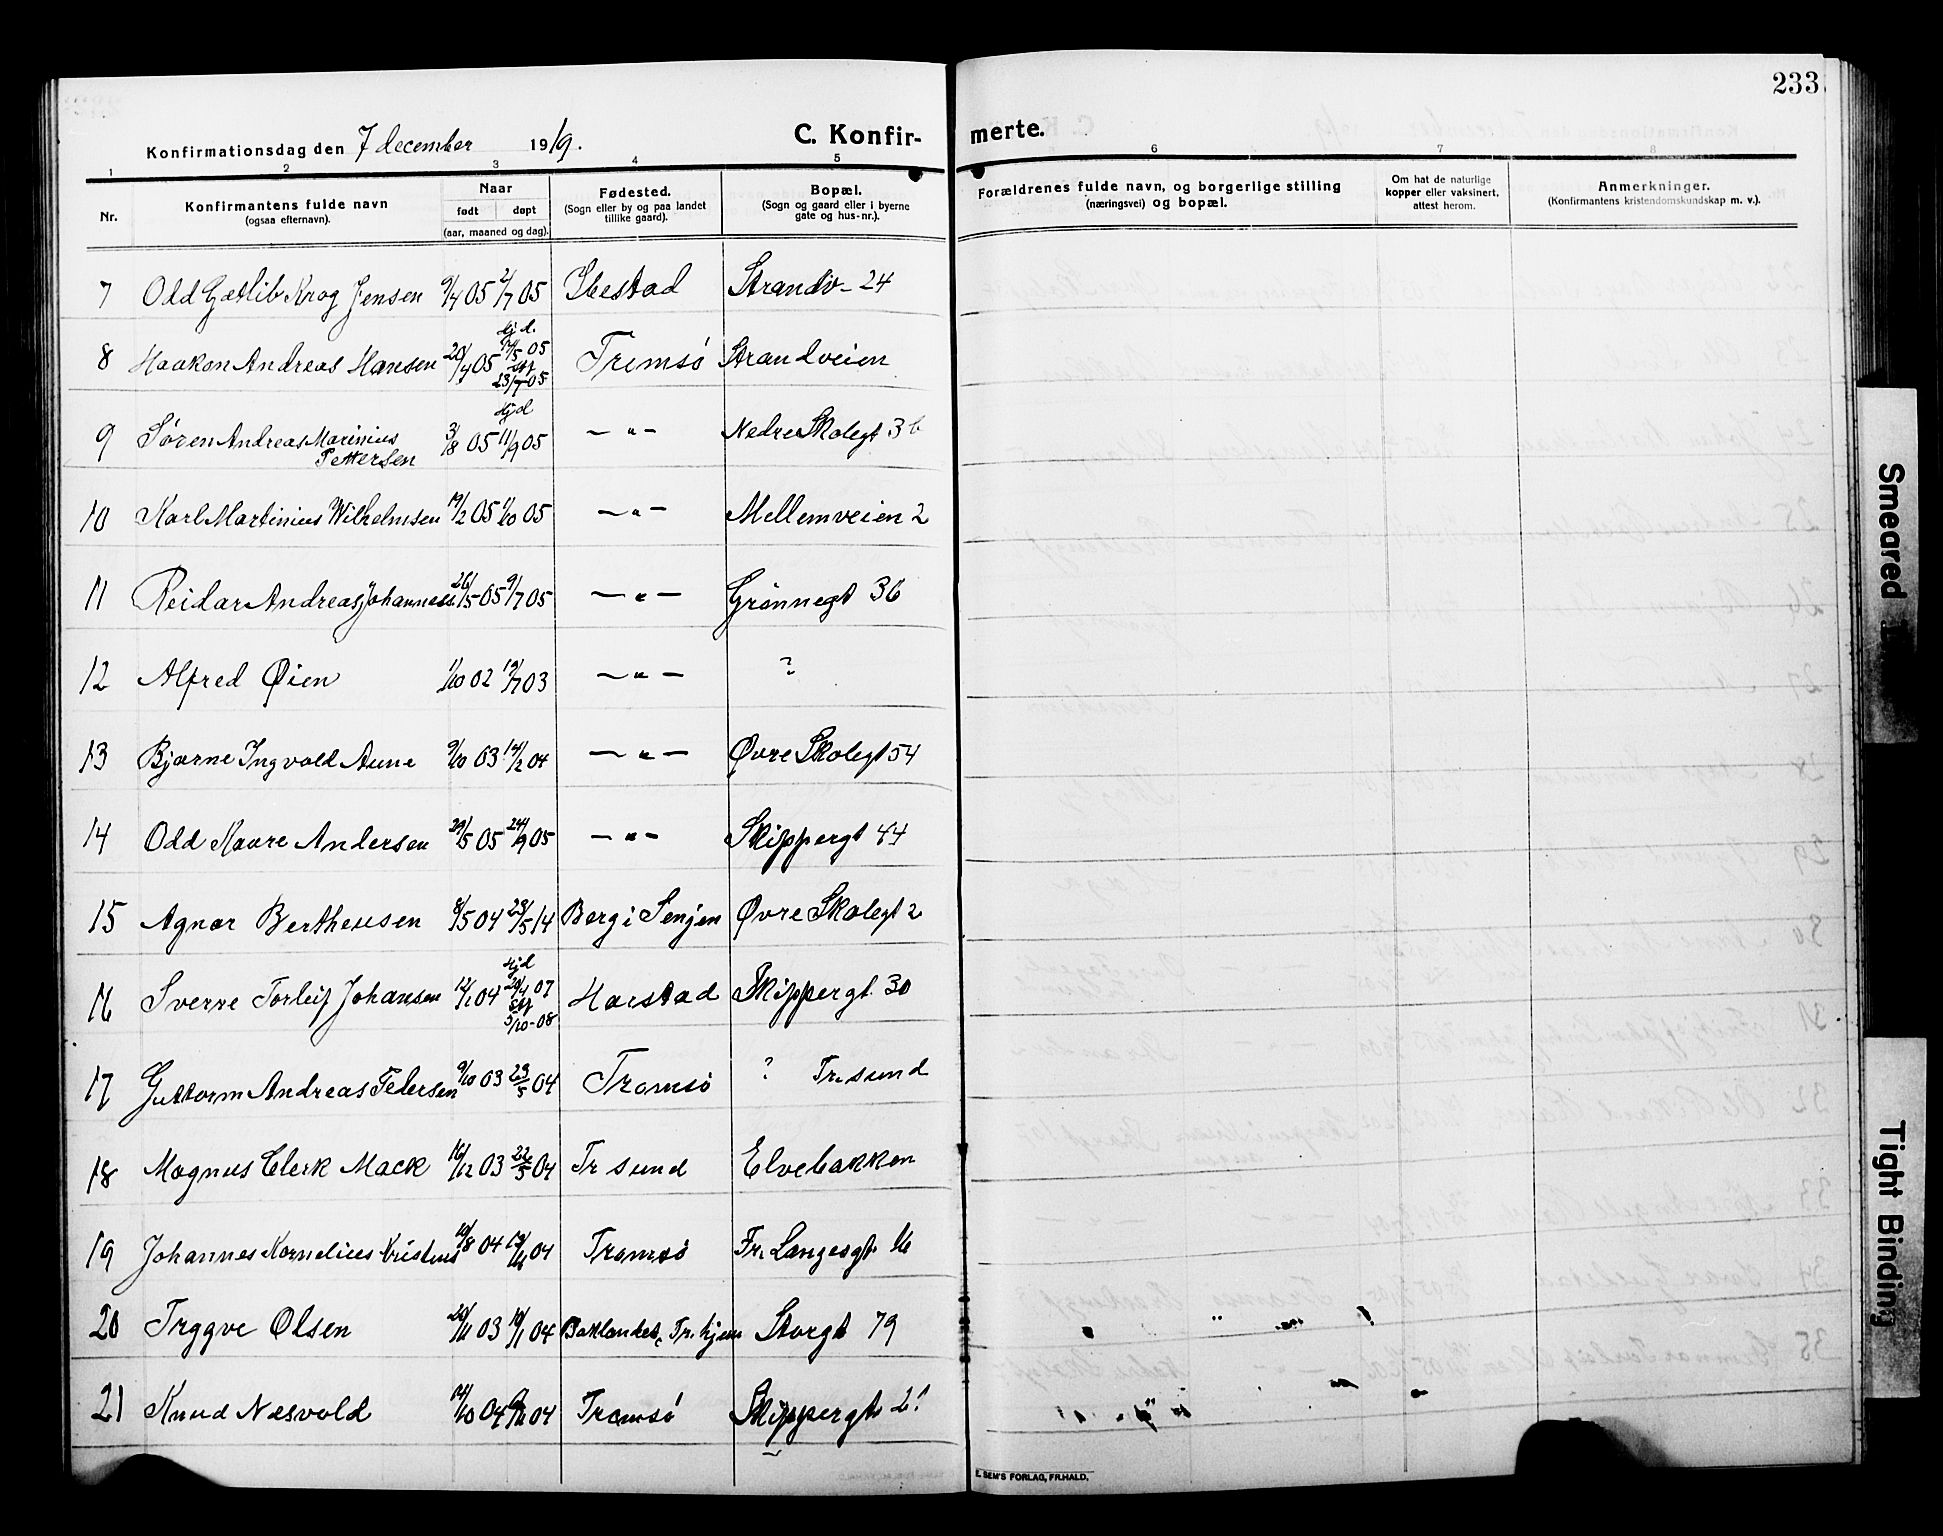 233
Konfirmationsdag den 7 december 1919.
C. Konfir- merte.
1 2 3 4 5 6 7 8
Nr.
Konfirmantens fulde navn
(ogsaa efternavn).
Naar
født døpt
(aar, maaned og dag).
Fødested.
(Sogn eller by og paa landet
tillike gaard).
Bopæl.
(Sogn og gaard eller i byerne
gate og hus-nr.).
Forældrenes fulde navn, og borgerlige stilling
(næringsvei) og bopæl.
Om hat de naturlige
kopper eller vaksinert,
attest herom.
Anmerkninger.
(Konfirmantens kristendomskundskap m. v.).
7 Odd Gotlib Krog Jensen 9/4 05 2/7 05 Ibestad Strandv- 24
8 Haakon Andreas Hansen 20/4 05 Hjd. 14/5 05 stf 23/7-05 Tromsø Strandveien
9 Søren Andreas Marinius Pettersen 3/8 05 Hjd 11/9 05 —"— Nedre Skolegt 36
10 Karl Martinius Wilhelmsen 19/2 05 1/10 05 —"— Mellemveien 2
11 Reidar Andreas Johanness. 26/5 05 9/7 05 —"— Grønnegt 36
12 Alfred Øien 1/10 02 19/7 03 —"— ?
13 Bjarne Ingvald Aune 9/10 03 14/2 04 —"— Øvre Skolegt 54
14 Odd Kaare Andersen 29/5 05 24/9 05 —"— Skippergt 44
15 Agnar Bertheusen 8/5 04 23/5 14 Berg i Senjen Øvre Skolegt 2
16 Sverre Torleif Johansen 12/1 04 Hjd 29/4 07 stf 5/10-08 Harstad Skippergt. 30
17 Guttorm Andreas Pedersen 9/10 03 23/5 04 Tromsø ? Tr.sund
18 Magnus Clerk Mack 16/12 03 22/5 04 Tr sund Elvebakken
19 Johannes Kornelius Kristens 19/8 04 04 Tromsø Fr. Langesgt. 16
20 Trygve Olsen 20/11 03 10/1 04 Baklandet, Tr.hjem Storgt 79
21 Knud Nesvold 14/10 04 04 Tromsø Skippergt.
E. SEM'S FORLAG, FR.HALD.
Smeared
Tight Binding